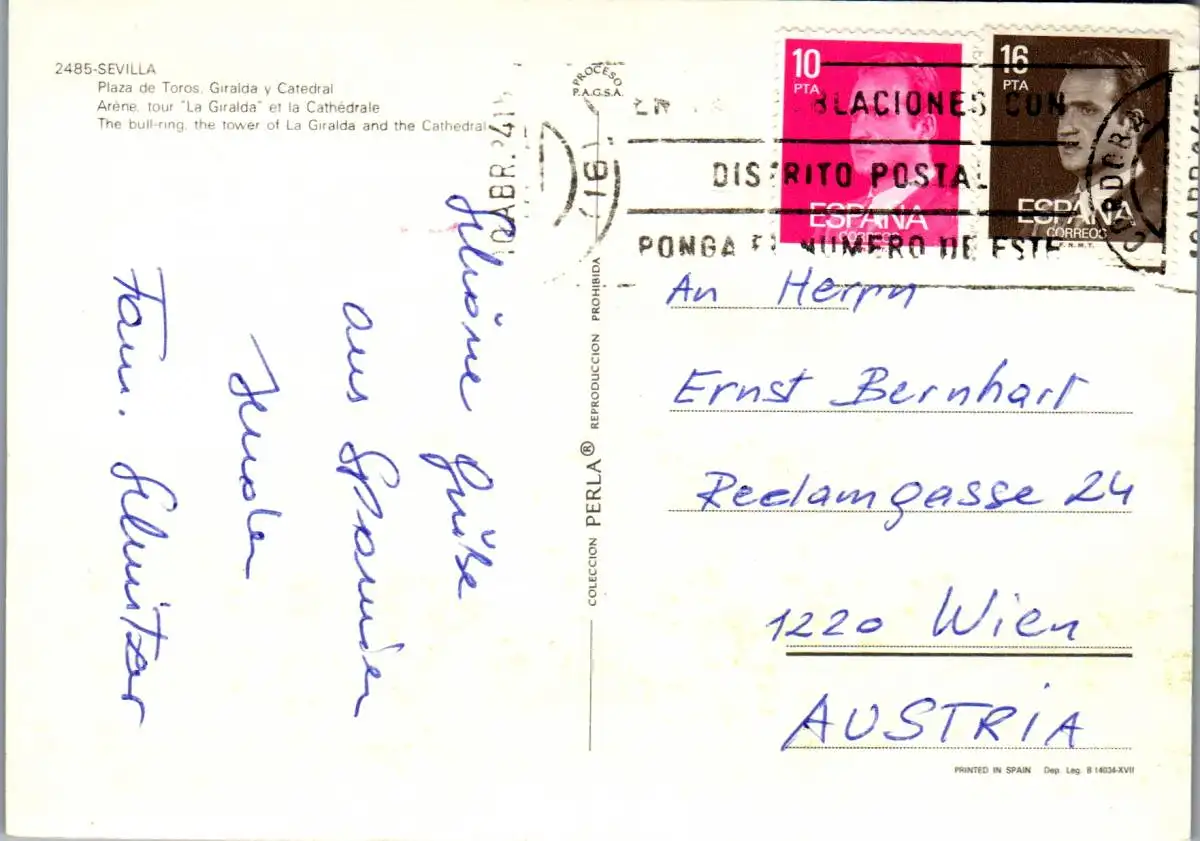 2485-SEVILLA
Plaza de Toros. Giralda y Catedral
Arène, tour "La Giralda" et la Cathédrale
The bull-ring, the tower of La Giralda and the Cathedral
Schöne Grüße
aus Spanien
senden
Fam. Schnitzer
PROCESO
P.A.G.S.A.
COLECCION PERLA® REPRODUCCION PROHIBIDA
10 PTA
ESPAÑA
CORREOS
16 PTA
ESPAÑA
CORREOS
F.N.M.T.
BLACIONES CON
DISTRITO POSTAL
PONGA EL NUMERO DE ESTE
ABR.
CORDOBA
An Herrn
Ernst Bernhart
Reclamgasse 24
1220 Wien
AUSTRIA
PRINTED IN SPAIN Dep. Leg. B 14034-XVII